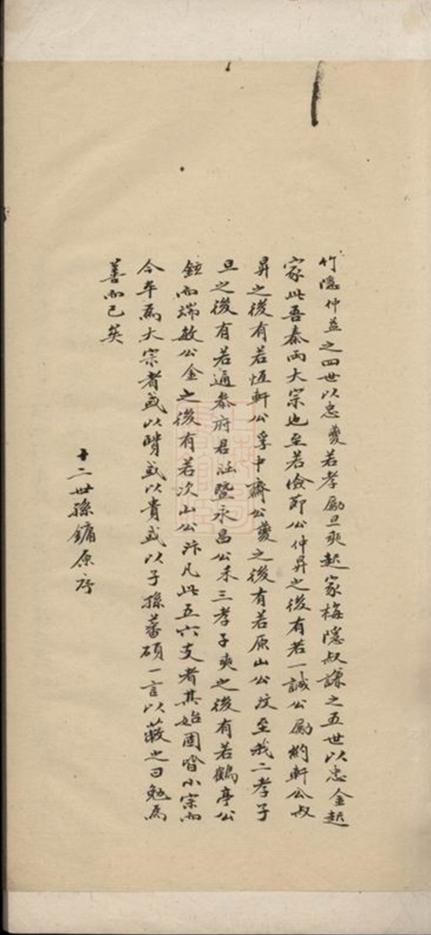 竹隱仲益之四世以忠夔若孝勵旦爽起家梅隱叔謙之五世以忠金起
家此吾秦兩大宗也至若儉節公仲昇之後有若一誠公勵約軒公叔
昇之後有若恆軒公孚中齋公夔之後有若原山公汶至我二孝子
旦之後有若通參府君泣暨永昌公禾三孝子爽之後有若鶴亭公
鋭而端敏公金之後有若次山公汴凡此五六支者其始固皆小宗而
今年為大宗者或以賢或以貴或以子孫蕃碩一言以蔽之曰勉為
善而已矣
十二世孫鏞原序